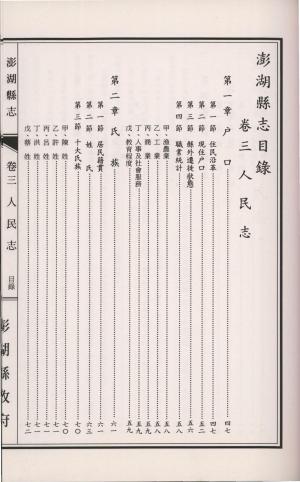 澎湖縣志目錄
卷三 人民志
第一章 戶口……四七
第一節 住民沿革……四七
第二節 現住戶口……五二
第三節 縣外遷徙狀態……五六
第四節 職業統計……五八
甲、漁農業……五八
乙、工業……五八
丙、商業……五九
丁、人事及社會服務……五九
戊、教育程度……五九
第二章 氏族……六一
第一節 居民籍貫……六一
第二節 姓氏……六三
第三節 十大氏族……七〇
甲、陳姓……七〇
乙、許姓……七一
丙、呂姓……七一
丁、洪姓……七一
戊、蔡姓……七二
澎湖縣志
卷三 人民志
目錄
澎湖縣政府